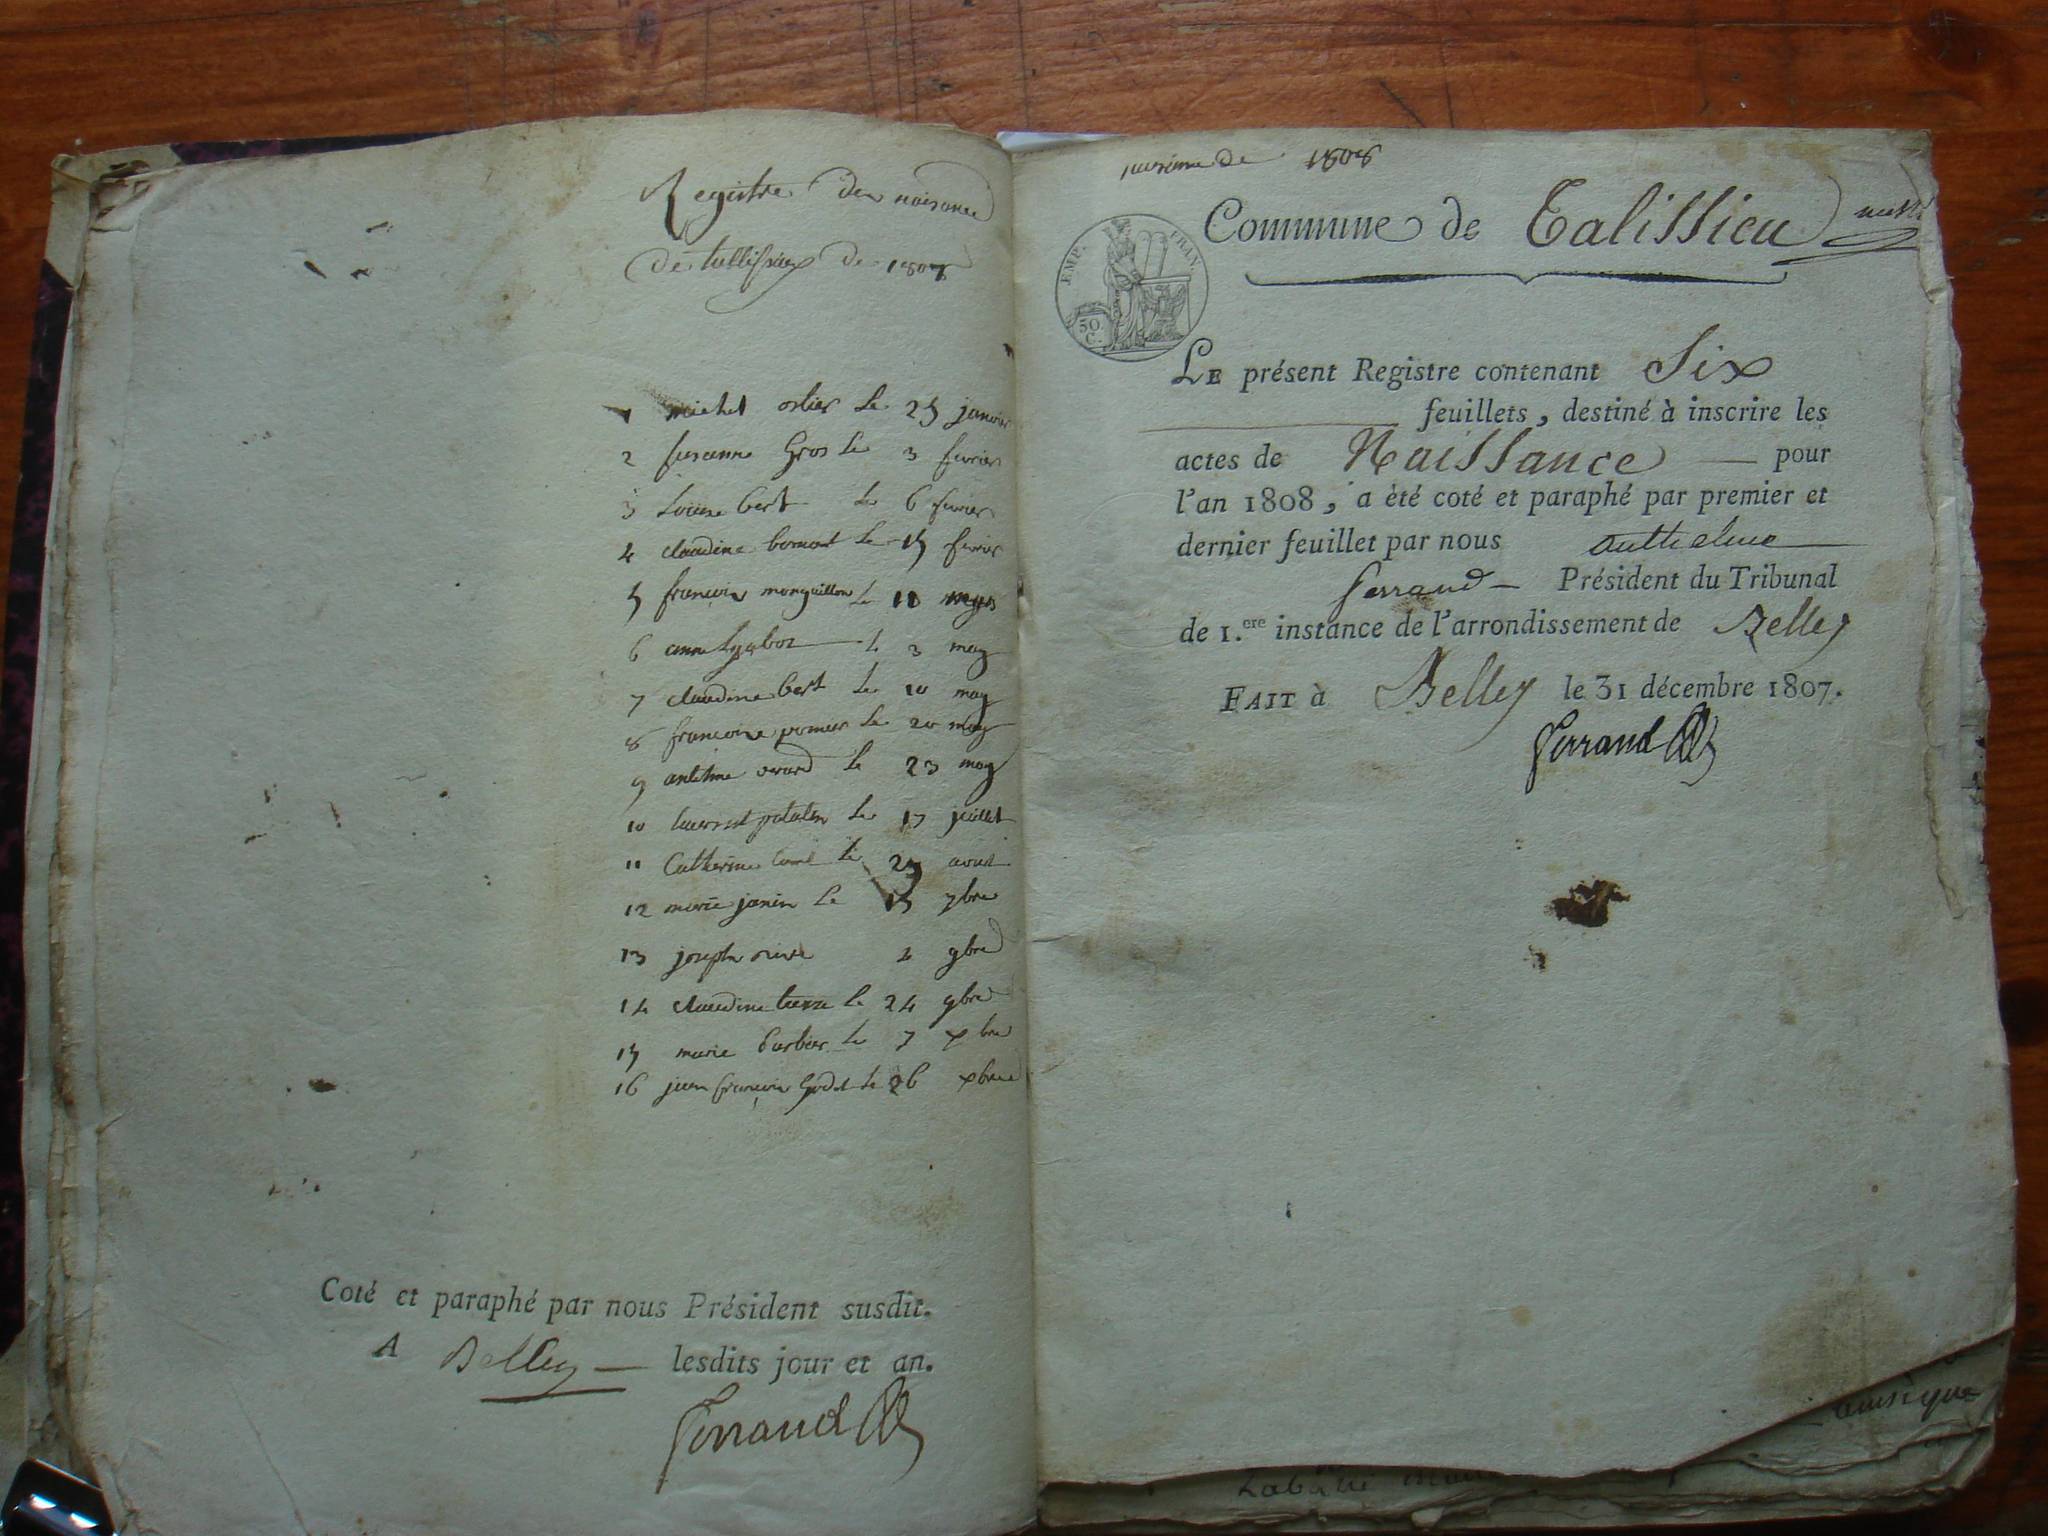 Registre de naisance
de tallissieux de 1807
1 michel oslier le 25 janvier
2 susanne Gros le 3 fevrier
3 Louise bert le 6 fevrier
4 claudine bornant le 15 fevrier
5 françoise monguillon le 11 mars
6 anne le 3 may
7 claudine bert le 10 may
8 francoise le 20 may
9 antelme le 23 may
10 le 17 juillet
11 Catherine le 25 aoust
12 marie janin le 15 7bre
13 joseph 2 9bre
14 claudine le 24 9bre
15 marie barbier le 7 xbre
16 jean françois Godet le 26 xbre
Coté et paraphé par nous Président susdit.
A Belley lesdits jour et an.
Ferrand
de 1808
Commune de Talissieu
EMP. FRAN.
50 C.
LE présent Registre contenant Six
feuillets, destiné à inscrire les
actes de Naissance pour
l'an 1808, a été coté et paraphé par premier et
dernier feuillet par nous anthelme
ferrand Président du Tribunal
de 1.ere instance de l'arrondissement de Belley
FAIT à Belley le 31 décembre 1807.
Ferrand